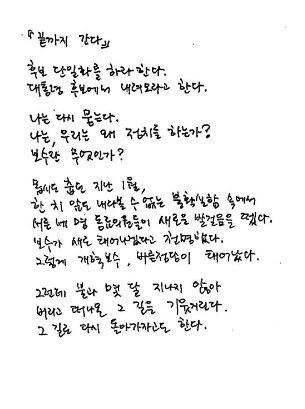 『끝까지 간다』
후보 단일화를 하라 한다.
대통령 후보에서 내려오라고 한다.
나는 다시 묻는다.
나는, 우리는 왜 정치를 하는가?
보수란 무엇인가?
몹시도 춥던 지난 1월,
한 치 앞도 내다볼 수 없는 불확실함 속에서
서른 세 명 동문의원들이 새로운 발걸음을 뗐다.
보수가 새로 태어나겠다고 천명했다.
그렇게 개혁보수, 바른정당이 태어났다.
그런데 불과 몇 달 지나지 않아
버리고 떠나온 그 길을 기웃거린다.
그 길로 다시 돌아가자고도 한다.